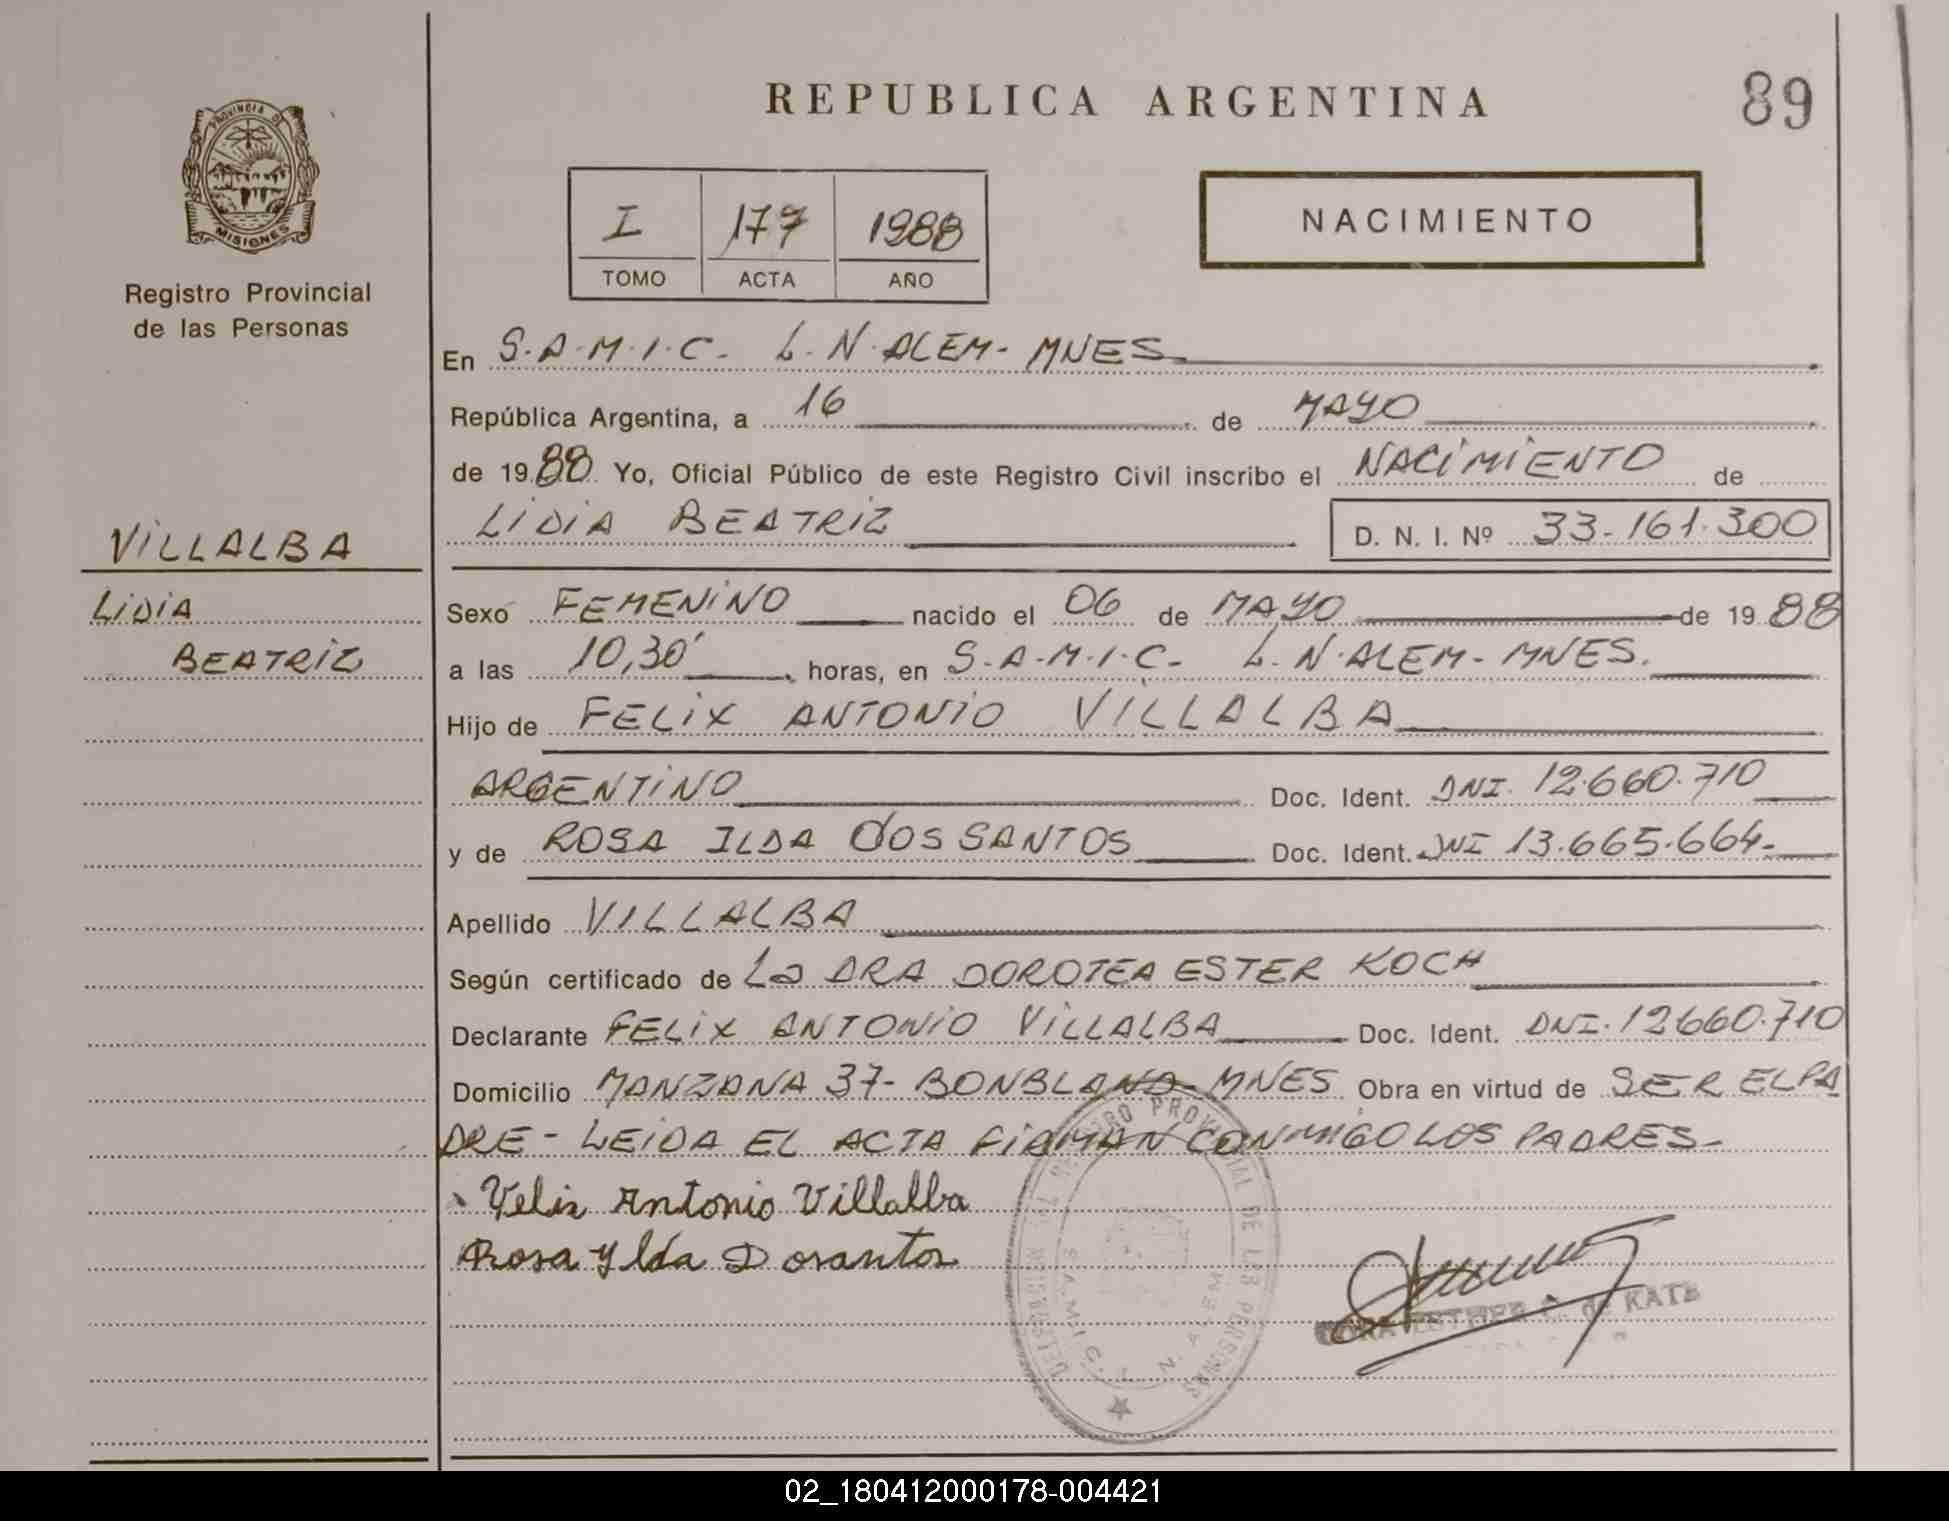 PROVINCIA DE
MISIONES
Registro Provincial
de las Personas
VILLALBA
LIDIA
BEATRIZ
REPUBLICA ARGENTINA
89
I 177 1988
TOMO ACTA AÑO
NACIMIENTO
En S.A.M.I.C. L.N.ALEM- MNES
República Argentina, a 16 de MAYO
de 1988 Yo, Oficial Público de este Registro Civil inscribo el NACIMIENTO de
LIDIA BEATRIZ D. N. I. Nº 33-161.300
Sexo FEMENINO nacido el 06 de MAYO de 1988
a las 10,30' horas, en S.A.M.I.C. L.N.ALEM- MNES.
Hijo de FELIX ANTONIO VILLALBA
ARGENTINO Doc. Ident. DNI. 12.660.710
y de ROSA ILDA DOS SANTOS Doc. Ident. DNI 13.665.664.
Apellido VILLALBA
Según certificado de La DRA DOROTEA ESTER KOCH
Declarante FELIX ANTONIO VILLALBA Doc. Ident. DNI. 12660.710
Domicilio MANZANA 37- BONBLAND- MNES Obra en virtud de SER EL PA
DRE - LEIDA EL ACTA FIRMAN CONMIGO LOS PADRES-
Velix Antonio Villalba
Rosa Ylda Dosantos
REGISTRO PROVINCIAL DE LAS PERSONAS
S.A.M.I.C. L. N. ALEM
ESTHER C. de KATZ
02_180412000178-004421